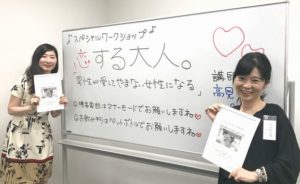 ♪スペシャルワークショップ♪
恋する大人。
「男性が愛してやまない女性になる」
携帯電話はマナーモードでお願いしますね♡
お飲み物はペットボトルでお願いします。
講師
高見